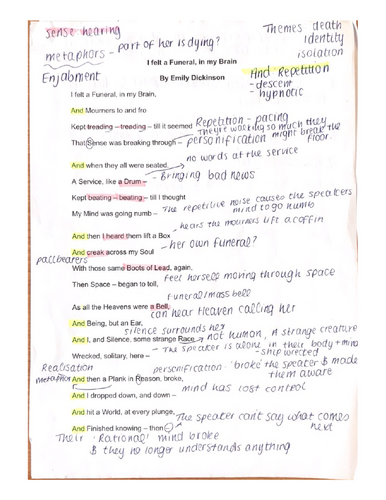 sense hearing
metaphors - part of her is dying?
Enjabment
Themes death
identity
isolation
And Repetition
- descent
- hypnotic
I felt a Funeral, in my Brain
By Emily Dickinson
I felt a Funeral, in my Brain,
And Mourners to and fro
Kept treading – treading – till it seemed
Repetition - pacing
They're walking so much they
might break the
floor.
That Sense was breaking through –
personification
no words at the service
And when they all were seated,
A Service, like a Drum –
- Bringing bad news
Kept beating – beating – till I thought
The repetitive noise causes the speakers
mind to go numb
My Mind was going numb –
- hears the mourners lift a coffin
And then I heard them lift a Box
And creak across my Soul
- her own Funeral?
pallbearers
With those same Boots of Lead, again,
Feel herself moving through space
Then Space – began to toll,
funeral/mass bell
As all the Heavens were a Bell,
can hear Heaven calling her
And Being, but an Ear,
silence surrounds her
And I, and Silence, some strange Race,
not human, A strange creature
- The speaker is alone in their body + mind
- ship wrecked
Wrecked, solitary, here –
Realisation
metaphor
personification 'broke' the speaker & made
them aware
And then a Plank in Reason, broke,
mind has lost control
And I dropped down, and down –
And hit a World, at every plunge,
The speaker can't say what comes
next
And Finished knowing – then –
Their 'Rational' mind broke
& they no longer understands anything